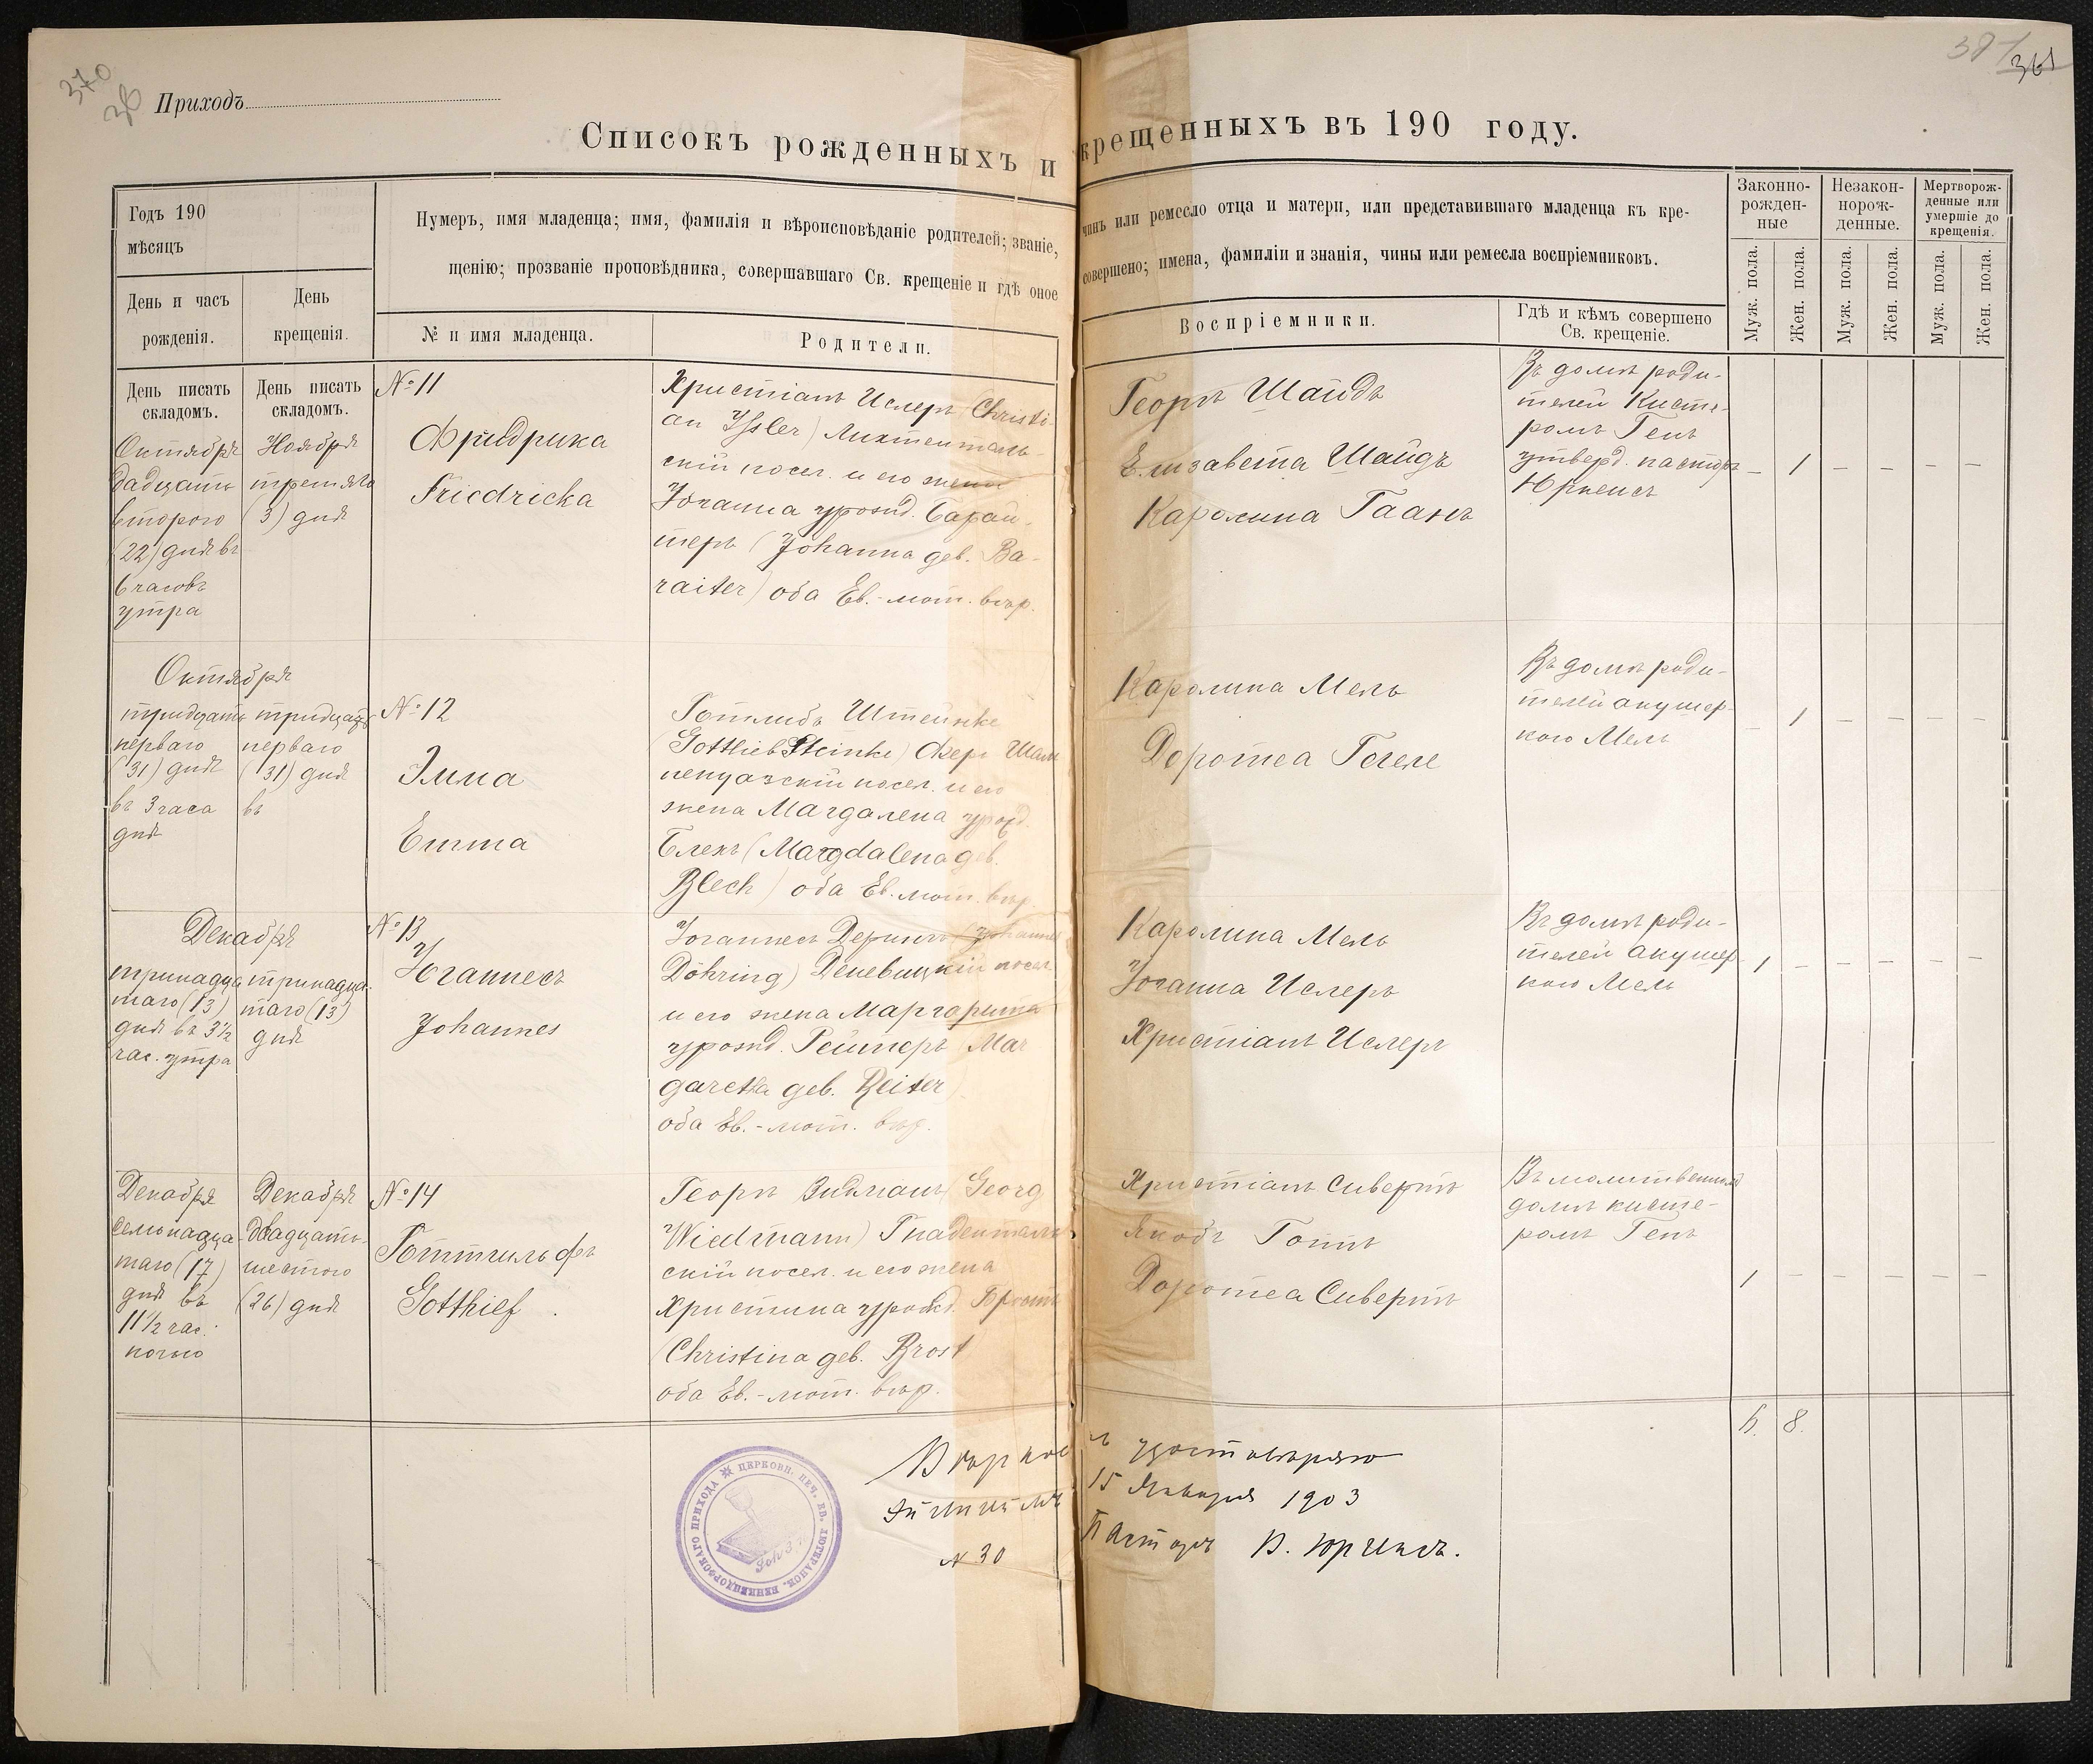 370
Приходъ
Списокъ рожденныхъ и крещенныхъ въ 190 году.
361
Годъ 190
мѣсяцъ
День и часъ
рожденія.
День
крещенія.
Нумеръ, имя младенца; имя, фамилія и вѣроисповѣданіе родителей; званіе, чинъ или ремесло отца и матери, или представившаго младенца къ кре-
щенію; прозваніе проповѣдника, совершавшаго Св. крещеніе и гдѣ оное совершено; имена, фамиліи и знанія, чины или ремесла воспріемниковъ.
№ и имя младенца.
Родители.
Воспріемники.
Гдѣ и кѣмъ совершено
Св. крещеніе.
Законно-
рожден-
ные
Незакон-
норож-
денные.
Мертворож-
денные или
умершіе до
крещенія.
Муж. пола.
Жен. пола.
Муж. пола.
Жен. пола.
Муж. пола.
Жен. пола.
День писать
складомъ.
День писать
складомъ.
Октября
двадцать
второго
(22) дня въ
6 часовъ
утра
Ноября
третьяго
(3) дня
№ 11
Фридрика
Friedricka
Христіанъ Ислеръ (Christi-
an Issler) Лихтенталь-
скій посел. и его жена
Іоганна урожд. Барай-
теръ (Johanna geb. Ba-
raiter) оба Ев.-лют. вѣр.
Георгъ Шайдъ
Елизавета Шайдъ
Каролина Гаанъ
Въ домѣ роди-
телей Кисте-
ромъ Генъ
утверд. пасторъ
Юргенсъ
– 1 – – – –
Октября
тридцать
перваго
(31) дня
въ 3 часа
дня
тридцать
перваго
(31) дня
въ
№ 12
Эмма
Emma
Готлибъ Штейнке
(Gottlieb Steinke) Фер Шам
пенуазскій посел. и его
жена Магдалена урожд.
Блехъ (Magdalena geb.
Blech) оба Ев. лют. вѣр.
Каролина Мель
Доротеа Гегеле
Въ домѣ роди-
телей акушер-
кою Мель
– 1 – – – –
Декабря
тринадца
таго (13)
дня въ 3½
час. утра
тринадца-
таго (13)
дня
№ 13
Іоганнесъ
Johannes
Іоганнесъ Дерингъ (Johannes
Döhring) Деневицкій посел.
и его жена Маргарита
урожд. Рейтеръ (Mar
garetha geb. Reiter)
оба Ев.-лют. вѣр.
Каролина Мель
Іоганна Ислеръ
Христіанъ Ислеръ
Въ домѣ роди-
телей акушер-
кою Мель
1 – – – – –
Декабря
семнадца-
таго (17)
дня въ
11½ час.
ночью
Декабря
двадцать-
шестого
(26) дня
№ 14
Готтгильфъ
Gotthilf
Георгъ Видманъ (Georg
Wiedmann) Гнадентальскій
посел. и его жена
Христина урожд. Бростъ
(Christina geb. Brost
оба Ев.-лют. вѣр.
Христіанъ Сивертъ
Якобъ Готтъ
Доротеа Сивертъ
Въ молитвенномъ
домѣ кисте-
ромъ Генъ
1 – – – – –
6. 8.
Вѣрность удостовѣряю
15 Января 1903
№ 30
Пасторъ В. Юргенсъ.